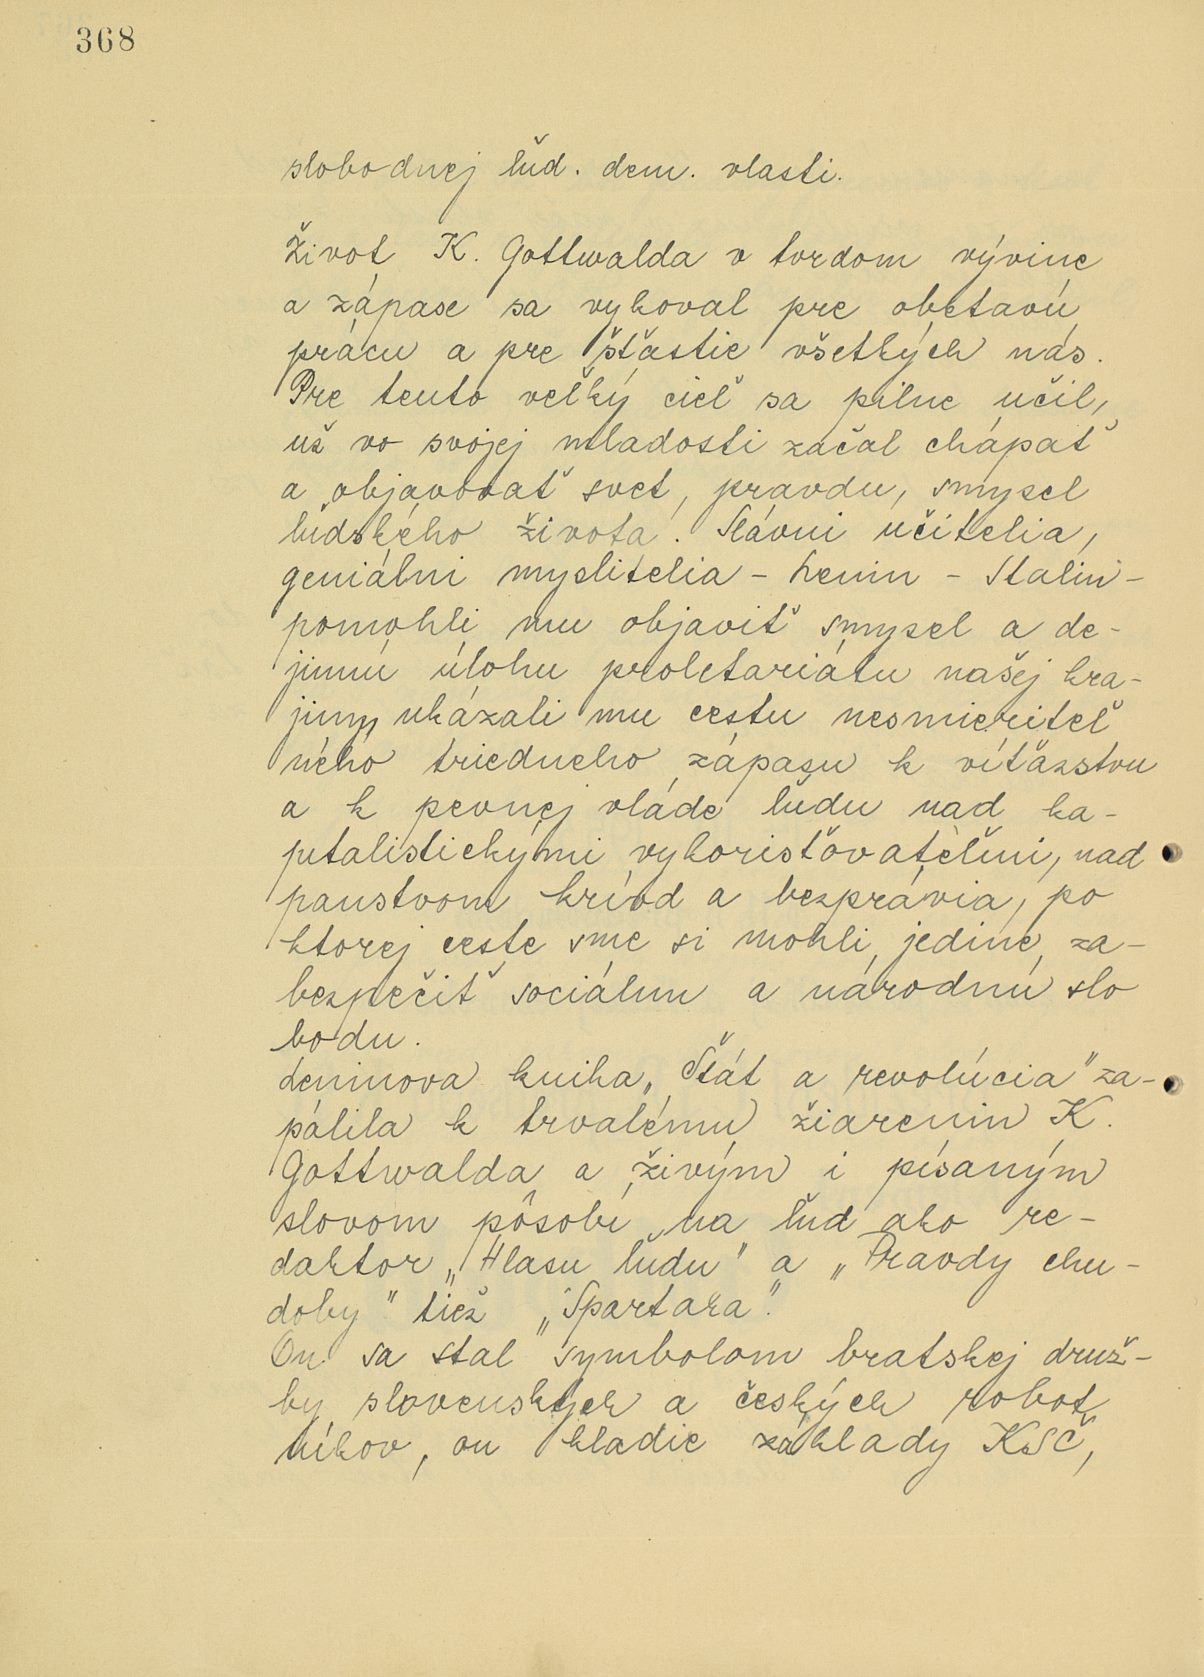 368
slobodnej ľud. dem. vlasti.
Život K. Gottwalda v tvrdom vývine
a zápase sa vykoval pre obetavú
prácu a pre šťastie všetkých nás.
Pre tento veľký cieľ sa pilne učil,
už vo svojej mladosti začal chápať
a objavovať svet, pravdu, smysel
ľudského života. Slávni učitelia,
geniálni myslitelia - Lenin - Stalin -
pomohli mu objaviť smysel a de-
jinnú úlohu proletariátu našej kra-
jiny, ukázali mu cestu nesmieriteľ
ného triedneho zápasu k víťazstvu
a k pevnej vláde ľudu nad ka-
pitalistickými vykorisťovateľmi, nad
panstvom krívd a bezprávia, po
ktorej ceste sme si mohli, jedine, za-
bezpečiť sociálnu a národnú slo
bodu.
Leninova kniha „Štát a revolúcia" za-
pálila k trvalému žiareniu K.
Gottwalda a živým i písaným
slovom pôsobí na ľud ako re-
daktor „Hlasu ľudu" a „Pravdy chu-
doby" tiež „Spartaka".
On sa stal symbolom bratskej druž-
by slovenských a českých robot
níkov, on kladie základy KSČ,